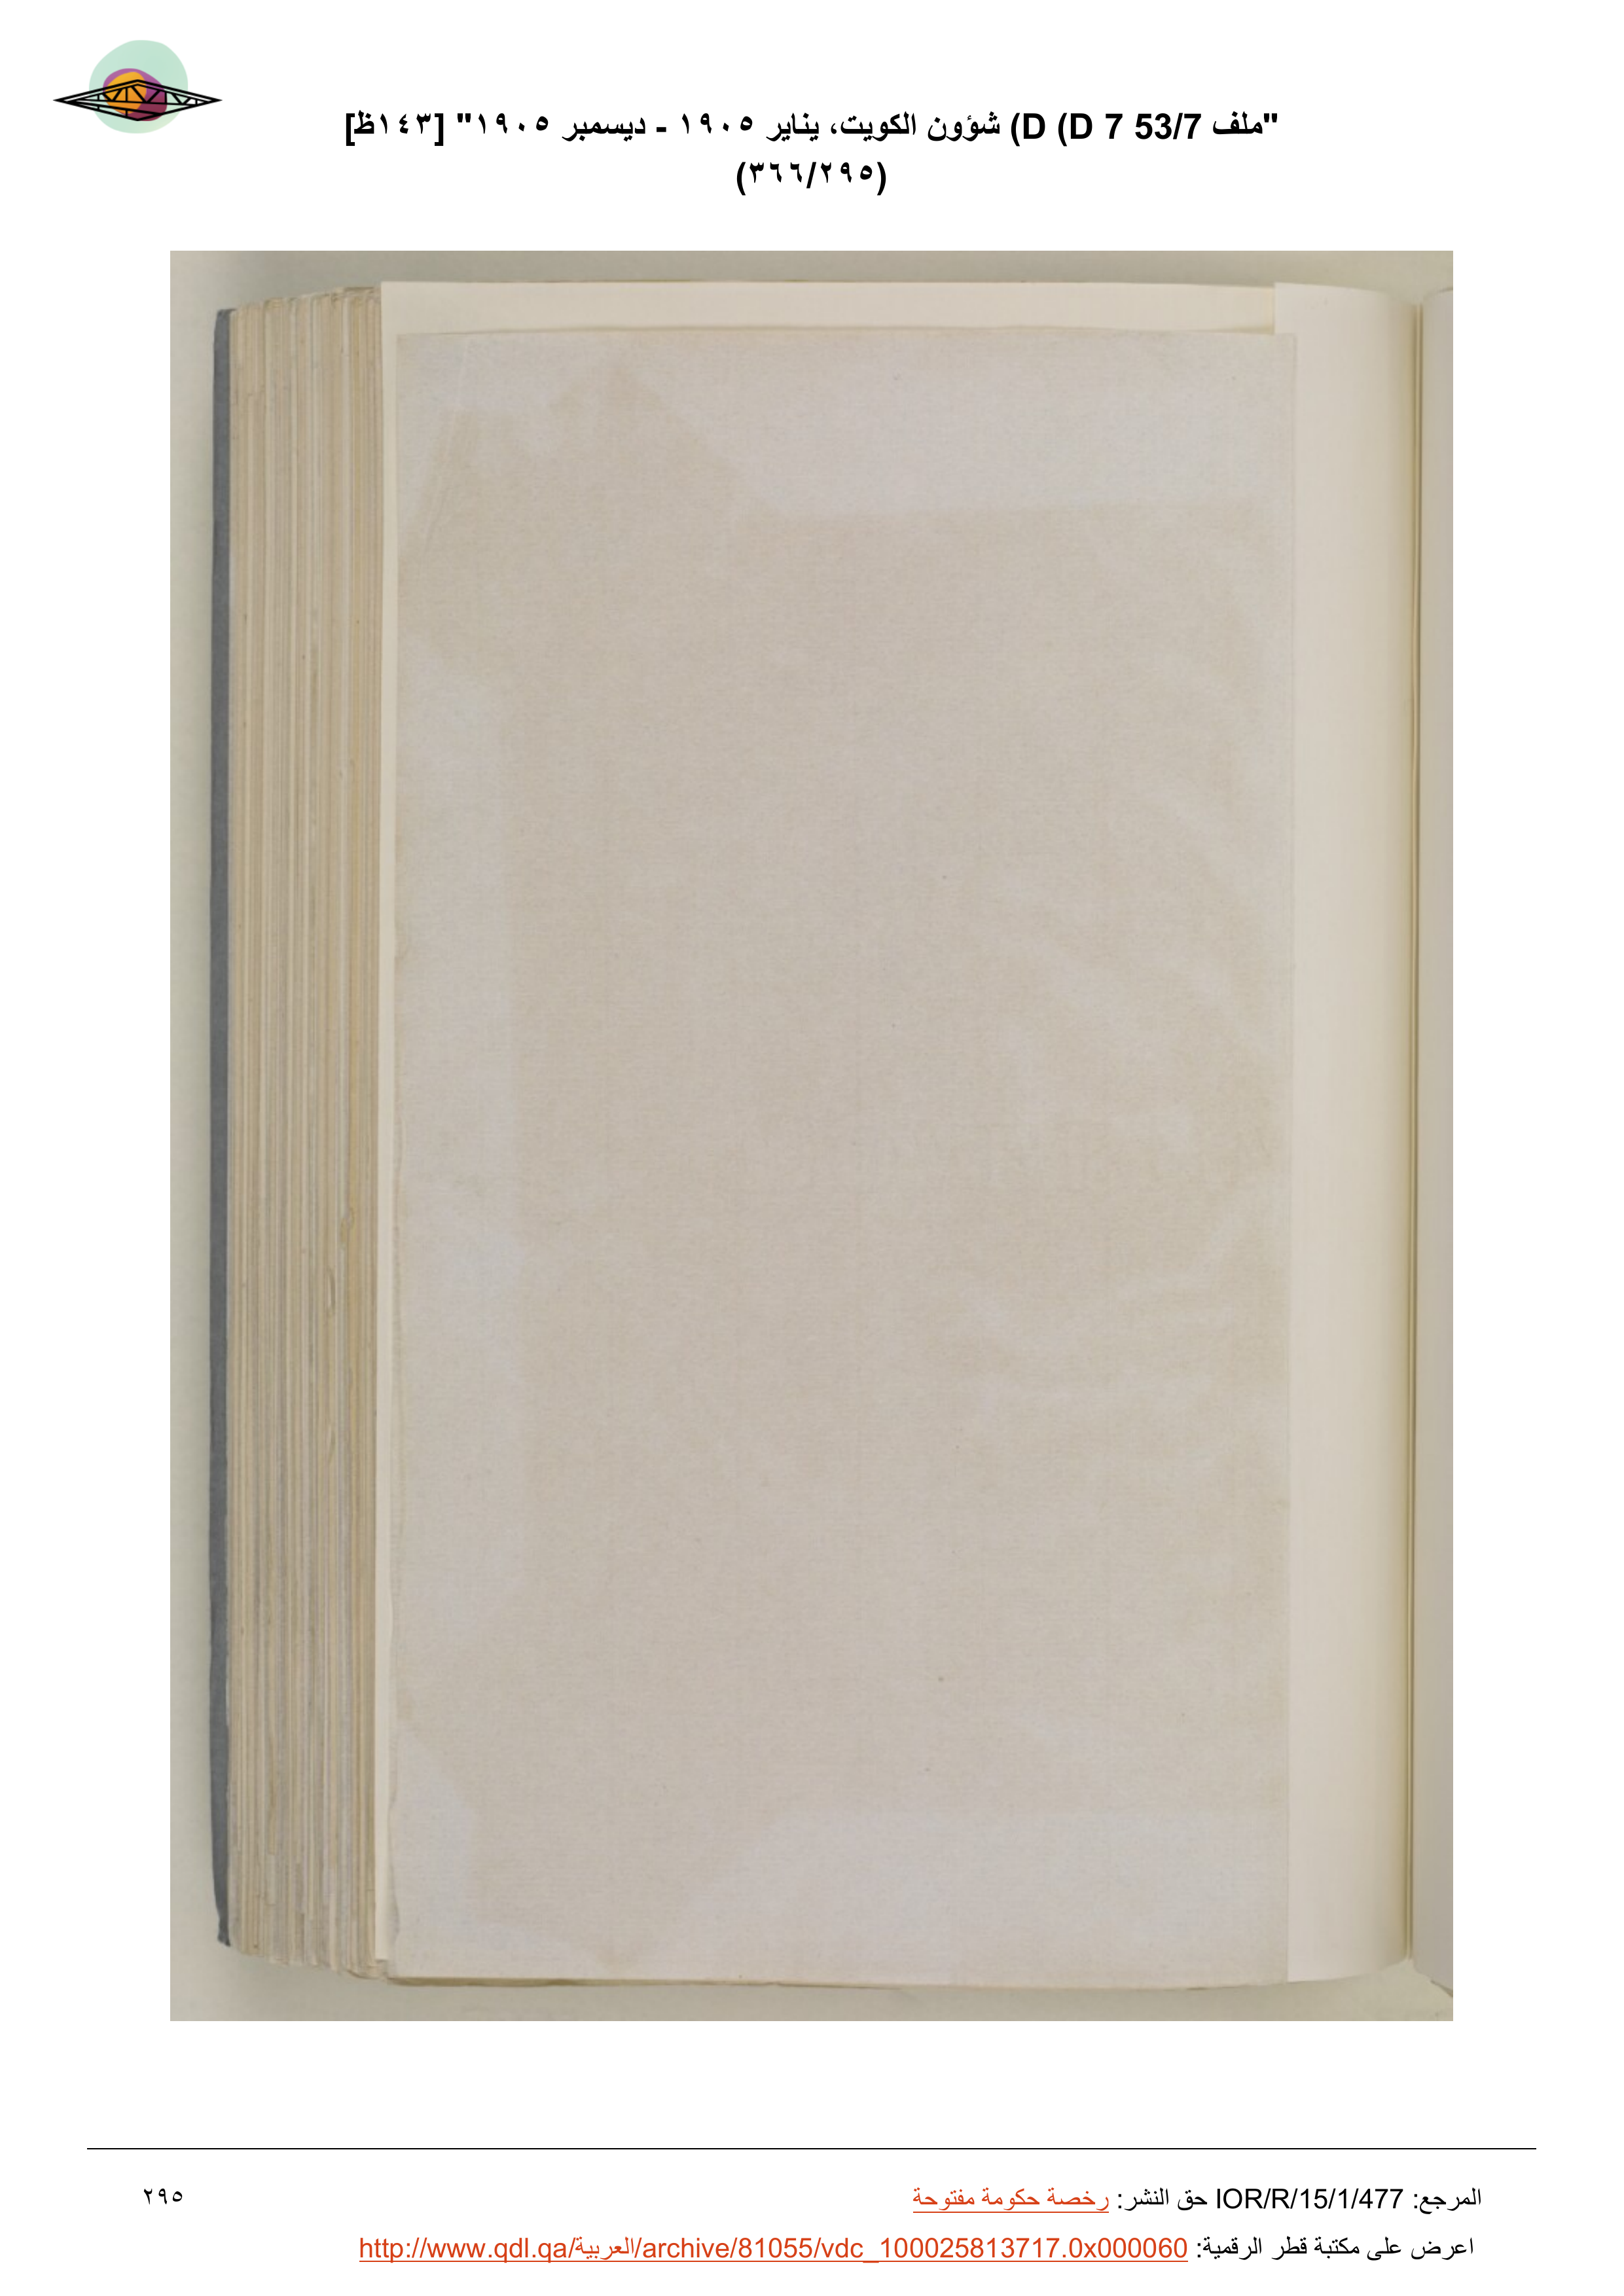 "ملف 53/7 D 7 (D) شؤون الكويت، يناير ١٩٠٥ - ديسمبر ١٩٠٥" [١٤٣ظ]
(٣٦٦/٢٩٥)
المرجع: IOR/R/15/1/477 حق النشر: رخصة حكومة مفتوحة
٢٩٥
اعرض على مكتبة قطر الرقمية: http://www.qdl.qa/العربية/archive/81055/vdc_100025813717.0x000060